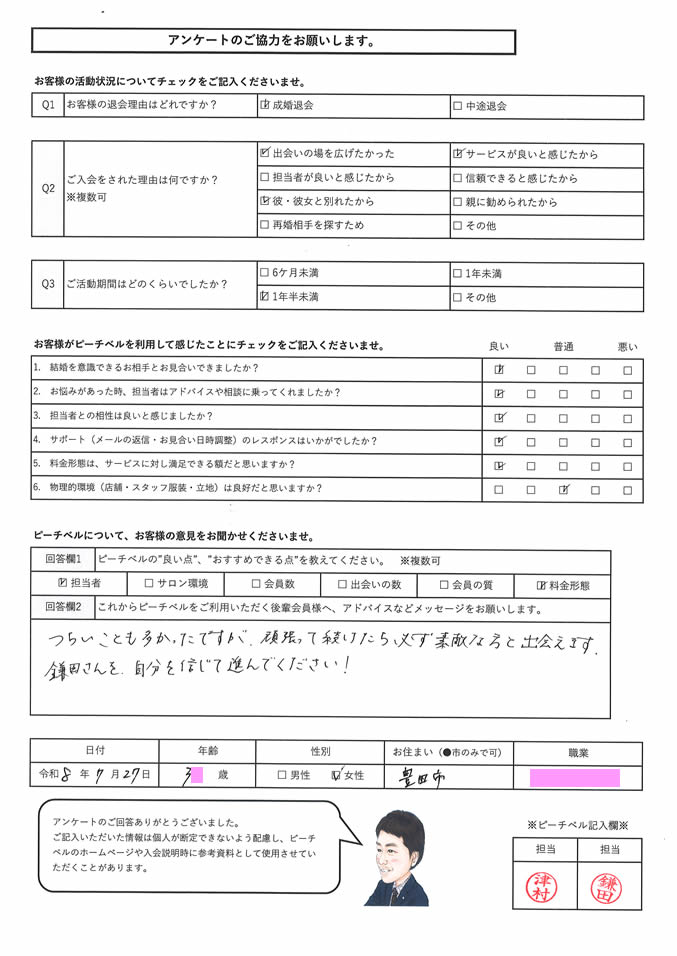 アンケートのご協力をお願いします。
お客様の活動状況についてチェックをご記入くださいませ。
Q1 お客様の退会理由はどれですか？ ☑成婚退会 □中途退会
Q2 ご入会をされた理由は何ですか？ ※複数可
☑出会いの場を広げたかった ☑サービスが良いと感じたから
□担当者が良いと感じたから □信頼できると感じたから
☑彼・彼女と別れたから □親に勧められたから
□再婚相手を探すため □その他
Q3 ご活動期間はどのくらいでしたか？
□6ケ月未満 □1年未満
☑1年半未満 □その他
お客様がピーチベルを利用して感じたことにチェックをご記入くださいませ。 良い 普通 悪い
1. 結婚を意識できるお相手とお見合いできましたか？ ☑ □ □ □ □
2. お悩みがあった時、担当者はアドバイスや相談に乗ってくれましたか？ ☑ □ □ □ □
3. 担当者との相性は良いと感じましたか？ ☑ □ □ □ □
4. サポート（メールの返信・お見合い日時調整）のレスポンスはいかがでしたか？ ☑ □ □ □ □
5. 料金形態は、サービスに対し満足できる額だと思いますか？ ☑ □ □ □ □
6. 物理的環境（店舗・スタッフ服装・立地）は良好だと思いますか？ □ □ ☑ □ □
ピーチベルについて、お客様の意見をお聞かせくださいませ。
回答欄1 ピーチベルの"良い点"、"おすすめできる点"を教えてください。 ※複数可
☑担当者 □サロン環境 □会員数 □出会いの数 □会員の質 ☑料金形態
回答欄2 これからピーチベルをご利用いただく後輩会員様へ、アドバイスなどメッセージをお願いします。
つらいことも多かったですが、頑張って続けたら必ず素敵な方と出会えます。
鎌田さんを、自分を信じて進んでください！
日付 年齢 性別 お住まい（●市のみで可） 職業
令和8年7月27日 3 歳 □男性 ☑女性 豊田市
アンケートのご回答ありがとうございました。
ご記入いただいた情報は個人が断定できないよう配慮し、ピーチ
ベルのホームページや入会説明時に参考資料として使用させてい
ただくことがあります。
※ピーチベル記入欄※
担当 担当
津村 鎌田